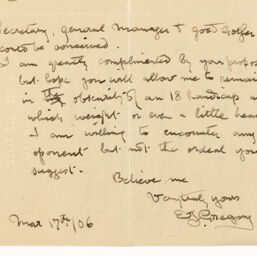 Secretary, General Manager & good Golfer
could be conceived.
I am greatly complimented by your propos
but hope you will allow me to remain
in the obscurity of an 18 handicap a
which weight or even a little hea
I am willing to encounter any
oponent but not the ordeal you
suggest.
Believe me
Very truly yours
E J Gregory
Mar 17th/06